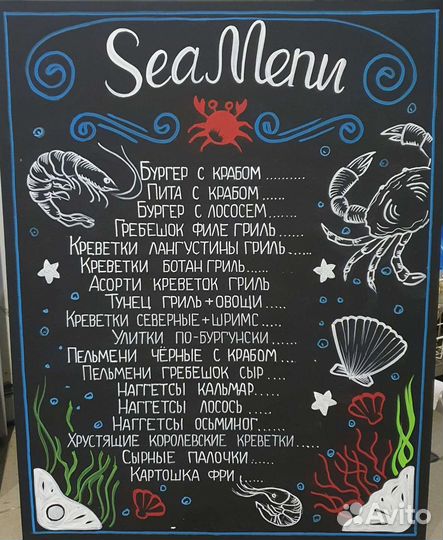 Sea Menu
Бургер с крабом..........
Пита с крабом......
Бургер с лососем.......
Гребешок филе гриль.....
Креветки лангустины гриль.....
Креветки ботан гриль.....
Ассорти креветок гриль
Тунец гриль+овощи....
Креветки северные+шримс....
Улитки по-бургунски
Пельмени чёрные с крабом....
Пельмени гребешок сыр....
Наггетсы кальмар.....
Наггетсы лосось.....
Наггетсы осьминог.....
Хрустящие королевские креветки.....
Сырные палочки....
Картошка фри.....
Avito